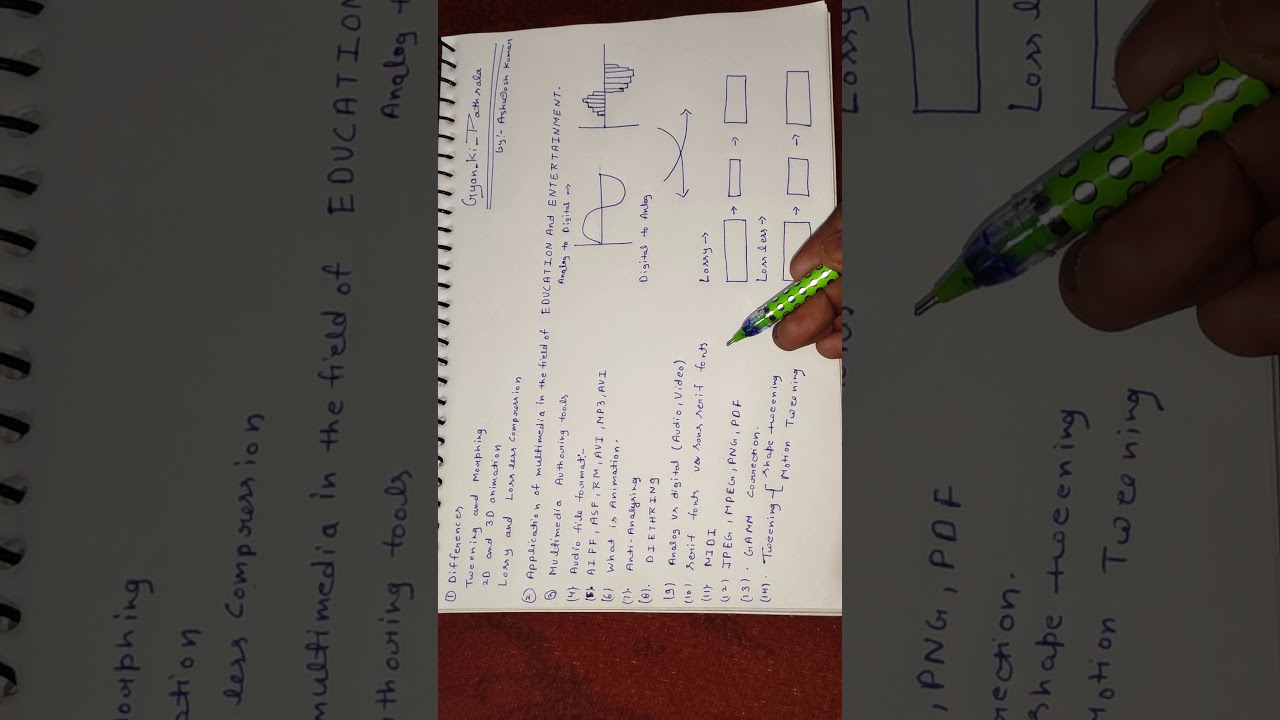 Gyan-Ki-Pathsala
by:- Ashutosh Kumar
① Differences
Tweening and Morphing
2D and 3D animation
Lossy and Loss less Compression
② Application of multimedia in the field of EDUCATION And ENTERTAINMENT.
③ Multimedia Authouring tools
(4) Audio file format:-
(5) AIFF, ASF, RM, AVI, MP3, AVI
(6) What is Animation.
(7) Anti-Analysing
(8). DIETHARING
(9) Analog vs digital (Audio, Video)
(10) Serif fonts vs sans serif fonts
(11) MIDI
(12) JPEG, MPEG, PNG, PDF
(13). GAMM Correction.
(14). Tweening [ Shape tweening
Motion Tweening
Analog to Digital →
Digital to Anlog
Lossy →
Loss less →